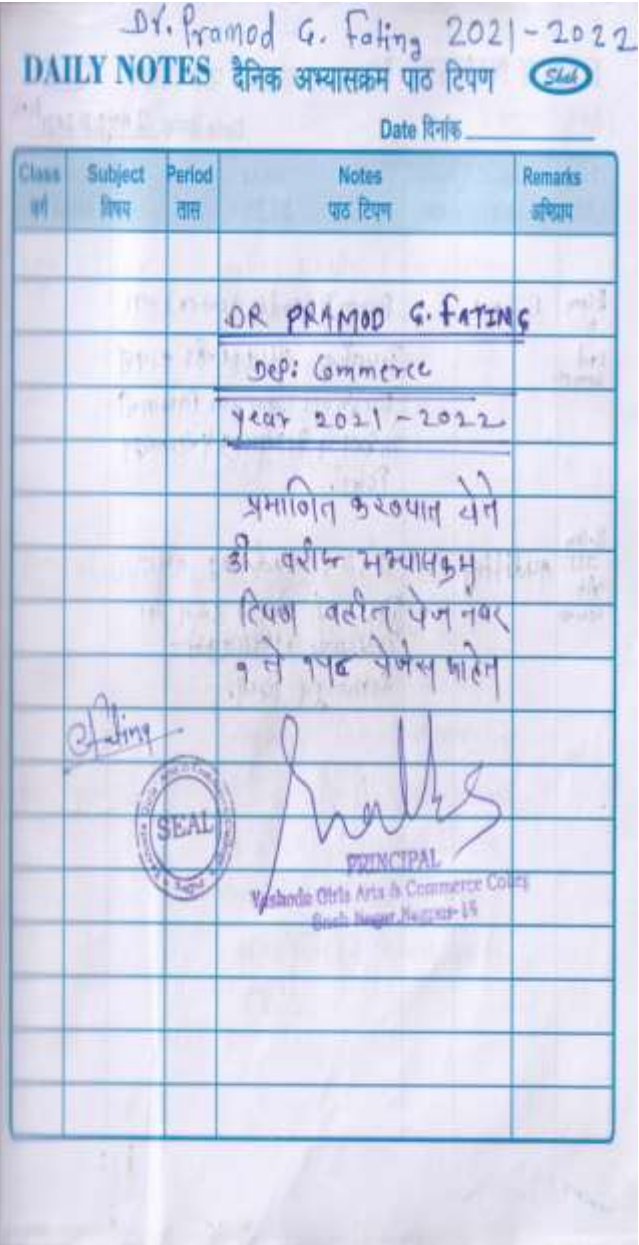 Dr. Pramod G. Fating 2021-2022
DAILY NOTES दैनिक अभ्यासक्रम पाठ टिपण
Date दिनांक
Class Subject Period Notes Remarks
वर्ग विषय तास पाठ टिपण अभिप्राय
DR PRAMOD G. FATING
Dep: Commerce
Year 2021-2022
प्रमाणित करण्यात येते
की वरील अभ्यासक्रम
टिपण वहीत पेज नंबर
१ ते १५८ पेजेस आहेत
Fating
SEAL
PRINCIPAL
Yashoda Girls Arts & Commerce College
Sneh Nagar, Nagpur-15